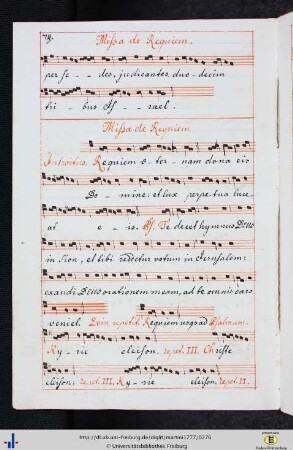 Missa de Requiem.
per se - - des, judicantes duo - decim
tri - bus Js - rael.
Missa de Requiem
Introitus. Requiem æ - ter - nam dona eis
Do - mine: et lux perpe tua luce -
at e - is. Ps. Te decet hymnus Deus
in Sion, et tibi redetur votum in Jerusalem:
exaudi Deus orationem meam, ad te omnis caro
veniet. repetit. Requiem usq ad Psalmum.
Ky - rie eleison. repet. III. Christe
eleison: repet. III. Ky - rie eleison. repet. II.
http://dl.ub.uni-freiburg.de/diglit/martini1777/0276
© Universitätsbibliothek Freiburg